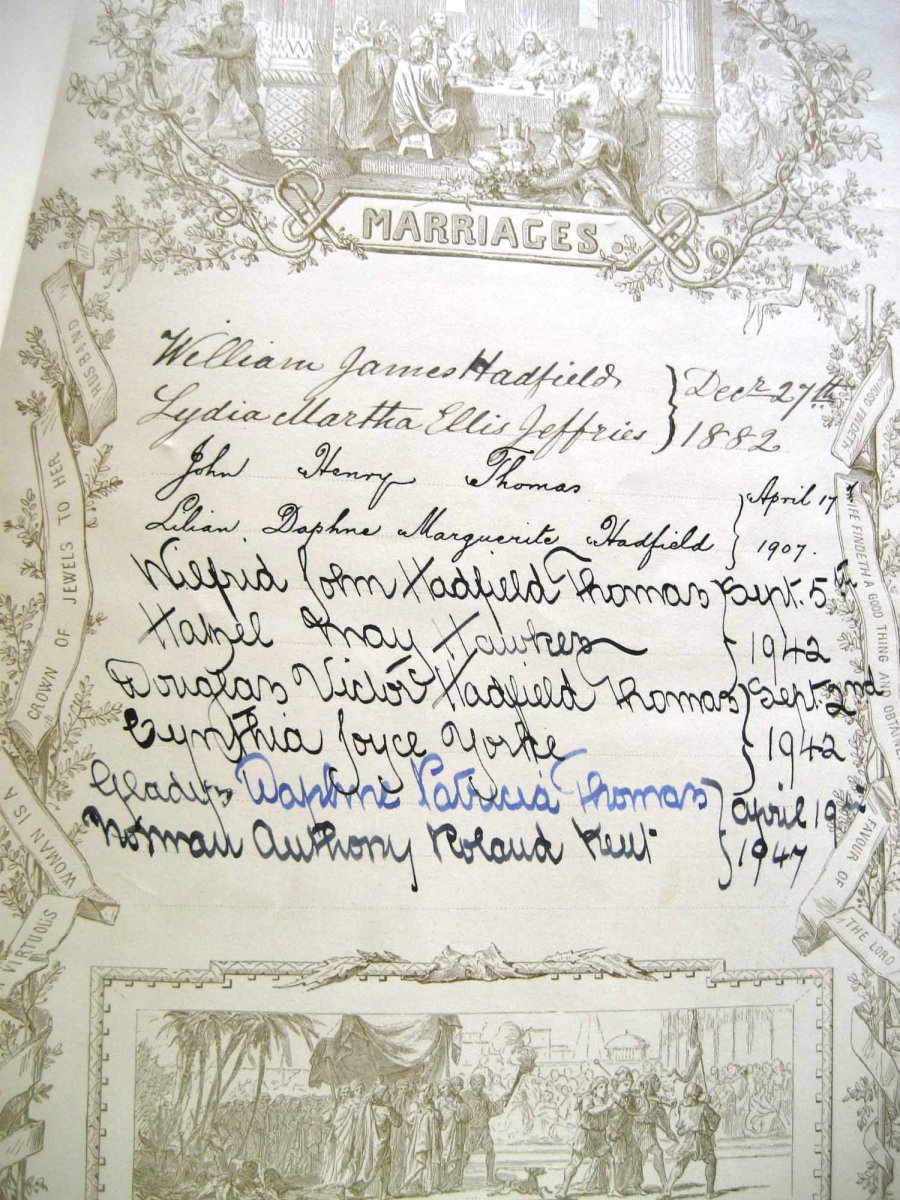 MARRIAGES
William James Hadfield } Decr 27th
Lydia Martha Ellis Jeffries } 1882
John Henry Thomas } April 17th
Lilian Daphne Marguerite Hadfield } 1907.
Wilfrid John Hadfield Thomas } Sept. 5th
Hazel May Hawkes } 1942
Douglas Victor Hadfield Thomas } Sept. 2nd
Cynthia Joyce Yorke } 1942
Gladys Daphne Patricia Thomas } April 19th
Norman Anthony Roland Kent } 1947
VIRTUOUS WOMAN IS A CROWN OF JEWELS TO HER HUSBAND
WHOSO FINDETH A WIFE FINDETH A GOOD THING AND OBTAINETH FAVOUR OF THE LORD